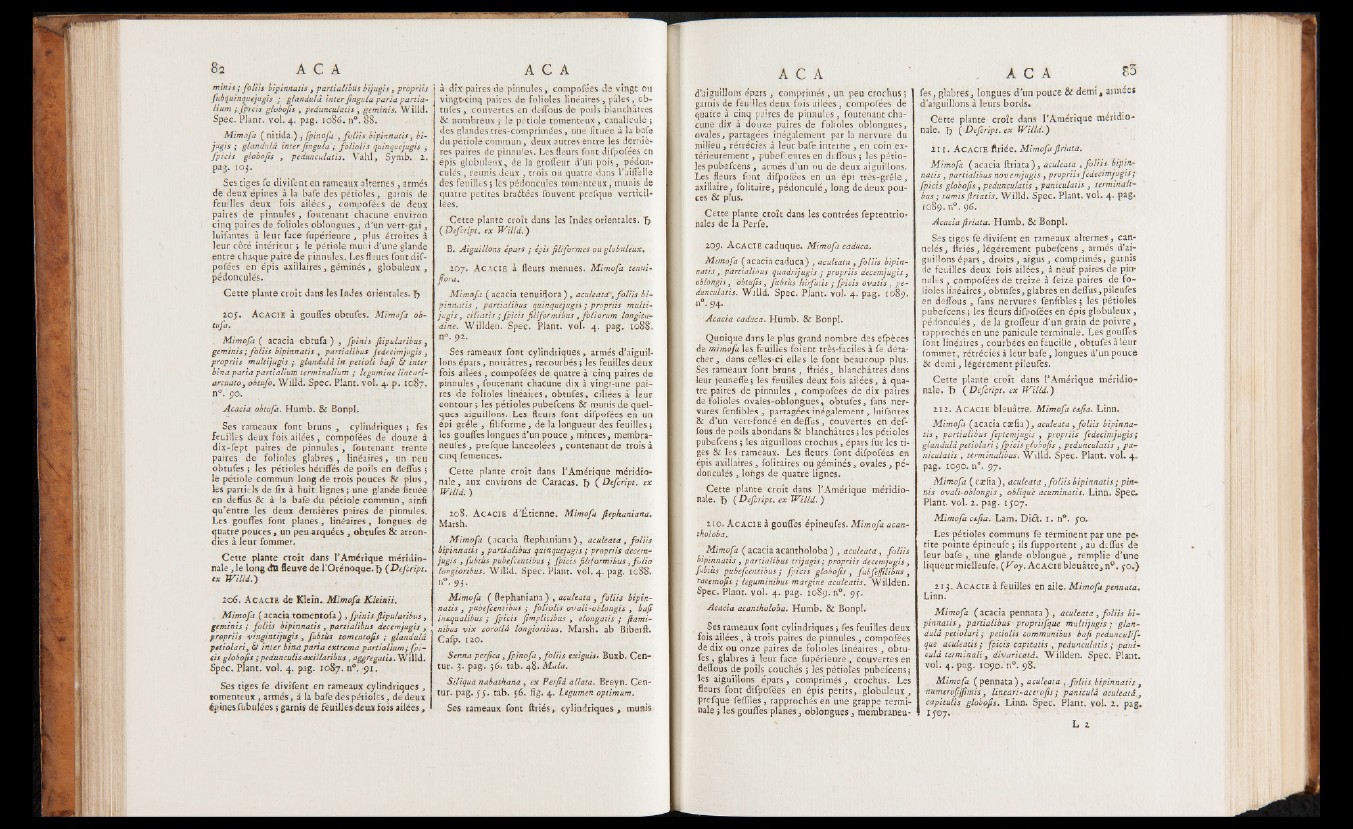 82 A C A
minis ; foliis bipinnatis, partialibus bijugis, propriis
subquinquejugis ; glandulâ inter singula paria partia-
lium ; spicis globosis, pedunculatis, geminis. Willd.
Spec. Plant. vol. 4. pag. 1086. n°. 88.
Mimosa (nitida), spinosa, foliis bipinnatis, bi-
jugis ; glandulâ inter singula, foliolis quinquejugis ;
spicis globosis, pedunculatis. Vahl, Symb. 2.
pag. 103.
Ses tiges se divisent en rameaux alternes, armés
de deux épines à la base des pétioles, garnis de
feuilles deux fois ailées, composées de deux
paires de pinnules, soutenant chacune environ
cinq paires de folioles oblongues, d'un vert-gai,
luisantes à leur face supérieure, plus étroites à
leur côté intérieur ; le pétiole muni d'une glande
entre chaque paire de pinnules. Les fleurs sont dis-
posées en épis axillaires, géminés, globuleux,
pédonculés.
Cette plante croît dans les Indes orientales. ♄
205. ACACIE à gousses obtuses. Mimosa ob-
tusa.
Mimosa ( acacia obtusa ) , spinis stipularibus,
geminis ; foliis bipinnatis, partialibus sedecimjugis,
propriis multijugis ; glandulâ in petioli basi & inter
bina paria partialium terminalium ; legumine lineari-
arcuato, obtuso. Willd. Spec. Plant. vol. 4. p. 1087.
n°. 90.
Acacia obtusa. Humb. & Bonpl.
Ses rameaux sont bruns, cylindriques ; ses
feuilles deux fois ailées, composées de douze à
dix-sept paires de pinnules, soutenant trente
paires de folioles glabres, linéaires, un peu
obtuses ; les pétioles hérissés de poils en dessus ;
le pétiole commun long de trois pouces & plus,
les partiels de six à huit lignes ; une glande située
en dessus & à la base du pétiole commun, ainsi
qu'entre les deux dernières paires de pinnules.
Les gousses sont planes, linéaires, longues de
quatre pouces, un peu arquées, obtuses & arron-
dies à leur sommet.
Cette plante croît dans l'Amérique méridio-
nale, le long du fleuve de l'Orénoque. ♄ (Descript.
ex Willd.)
206. ACACIE de Klein. Mimosa Kleinii.
Mimosa ( acacia tomentosa ) , spinis stipularibus,
geminis ; foliis bipinnatis, partialibus decemjugis,
propriis vingintijugis, subtùs tomentosis ; glandulâ
petiolari, & inter bina paria extrema partialium ; spi-
cis globosis ; pedunculis axillaribus, aggregatis. Willd.
Spec. Plant. vol. 4. pag. 1087. n°. 91.
Ses tiges se divisent en rameaux cylindriques,
tomenteux, armés, à la base des pétioles, de deux
épines subulées ; garnis de feuilles deux fois ailées,
A C A
à dix paires de pinnules, composées de vingt ou
vingt-cinq paires de folioles linéaires, pâles, ob-
tuses, couvertes en dessous de poils blanchâtres
& nombreux ; le pétiole tomenteux, canaliculé ;
des glandes très-comprimées, une située à la base
du pétiole commun, deux autres entre les derniè-
res paires de pinnules. Les fleurs sont disposées en
épis globuleux, de la grosseur d'un pois, pédon-
culés, réunis deux, trois ou quatre dans l'aisselle
des feuilles ; les pédoncules tomenteux, munis de
quatre petites bractées souvent presque verticil-
lées.
Cette plante croît dans les Indes orientales. ♄
(Descript. ex Willd.)
B. Aiguillons épars ; épis filiformes ou globuleux.
207. ACACIE à fleurs menues. Mimosa tenui-
flora.
Mimosa ( acacia tenuiflora ), aculeata, foliis bi-
pinnatis, partialibus quinquejugis ; propriis multi-
jugis, ciliatis ; spicis filiformibus, foliorum longitu-
dine. Willden. Spec. Plant. vol. 4. pag. 1088.
n°. 92.
Ses rameaux sont cylindriques, armés d'aiguil-
lons épars, noirâtres, recourbés ; les feuilles deux
fois ailées, composées de quatre à cinq paires de
pinnules, soutenant chacune dix à vingt-une pai-
res de folioles linéaires, obtuses, ciliées à leur
contour ; les pétioles pubescens & munis de quel-
ques aiguillons. Les fleurs sont disposées en un
épi grêle, filiforme, de la longueur des feuilles ;
les gousses longues d'un pouce, minces, membra-
neuses, presque lanceolées, contenant de trois à
cinq semences.
Cette plante croît dans l'Amérique méridio-
nale, aux environs de Caracas. ♄ (Descript. ex
Willd.)
208. ACACIE d'Étienne. Mimosa stephaniana.
Marsh.
Mimosa (acacia stephaniana), aculeata, foliis
bipinnatis, partialibus quinquejugis ; propriis decem-
jugis, subtùs pubescentibus ; spicis filiformibus, folio
longioribus. Willd. Spec. Plant. vol. 4. pag. 1088.
n°. 93.
Mimosa ( stephaniana ) , aculeata, foliis bipin-
natis, pubescentibus ; foliolis ovali-oblongis, basi
inæqualibus ; spicis simplicibus, elongatis ; stami-
nibus vix corollâ longioribus. Marsh. ab Biberst.
Casp. 120.
Senna persica, spinosa, foliis exiguis. Buxb. Cen-
tur. 3. pag. 36. tab. 48. Mala.
Siliqua nabathæna, ex Persiâ allata. Breyn. Cen-
tur. pag. 55. tab. 36. fig. 4. Legumen optimum.
Ses rameaux sont striés, cylindriques, munis
A C A
d'aiguillons épars, comprimés, un peu crochus ;
garnis de feuilles deux fois ailées, composées de
quatre à cinq paires de pinnules, soutenant cha-
cune dix à douze paires de folioles oblongues,
ovales, partagées inégalement par la nervure du
milieu, rétrécies à leur base interne, en coin ex-
térieurement, pubescentes en dessous ; les pétio-
les pubescens, armés d'un ou de deux aiguillons.
Les fleurs sont disposées en un épi très-grêle,
axillaire, solitaire, pédonculé, long de deux pou-
ces & plus.
Cette plante croît dans les contrées septentrio-
nales de la Perse.
209. ACACIE caduque. Mimosa caduca.
Mimosa ( acacia caduca ) , aculeata, foliis bipin-
natis, partialibus quadrijugis ; propriis decemjugis,
oblongis, obtusis, subtùs hirsutis ; spicis ovatis, pe-
dunculatis. Willd. Spec. Plant. vol. 4. pag. 1089.
n°. 94.
Acacia caduca. Humb. & Bonpl.
Quoique dans le plus grand nombre des espèces
de mimosa les feuilles soient très-faciles à se déta-
cher, dans celles-ci elles le sont beaucoup plus.
Ses rameaux sont bruns, striés, blanchâtres dans
leur jeunesse ; les feuilles deux fois ailées, à qua-
tre paires de pinnules, composées de dix paires
de folioles ovales-oblongues, obtuses, sans ner-
vures sensibles, partagées inégalement, luisantes
& d'un vert-foncé en dessus, couvertes en des-
sous de poils abondans & blanchâtres ; les pétioles
pubescens ; les aiguillons crochus, épars sur les ti-
ges & les rameaux. Les fleurs sont disposées en
épis axillaires, solitaires ou géminés, ovales, pé-
donculés, longs de quatre lignes.
Cette plante croît dans l'Amérique méridio-
nale. ♄ (Descript. ex Willd.)
210. ACACIE à gousses épineuses. Mimosa acan-
tholoba.
Mimosa ( acacia acantholoba ) , aculeata, foliis
bipinnatis, partialibus trijugis ; propriis decemjugis,
subtùs pubescentibus ; spicis globosis, subsessilibus,
racemosis ; leguminibus margine aculeatis. Willden.
Spec. Plant. vol. 4. pag. 1089. n°. 95.
Acacia acantholoba. Humb. & Bonpl.
Ses rameaux sont cylindriques ; ses feuilles deux
fois ailées, à trois paires de pinnules, composées
de dix ou onze paires de folioles linéaires, obtu-
ses, glabres à leur face supérieure, couvertes en
dessous de poils couchés ; les pétioles pubescens ;
les aiguillons épars, comprimés, crochus. Les
fleurs sont disposées en épis petits, globuleux,
presque sessiles, rapprochés en une grappe termi-
nale ; les gousses planes, oblongues, membraneu-
A C A 83
ses, glabres, longues d'un pouce & demi, armées
d'aiguillons à leurs bords.
Cette plante croît dans l'Amérique méridio-
nale. ♄ (Descript. ex Willd.)
211. ACACIE striée. Mimosa striata.
Mimosa ( acacia striata ) , aculeata, foliis bipin-
natis, partialibus novemjugis, propriis sedecimjugis ;
spicis globosis, pedunculatis, paniculatis, terminali-
bus ; ramis striatis. Willd. Spec. Plant. vol. 4. pag.
1089. n°. 96.
Acacia striata. Humb. & Bonpl.
Ses tiges se divisent en rameaux alternes, can-
nelés, striés, légérement pubescens, armés d'ai-
guillons épars, droits, aigus, comprimés, garnis
de feuilles deux fois ailées, à neuf paires de pin-
nules, composées de treize à seize paires de fo-
lioles linéaires, obtuses, glabres en dessus, pileuses
en dessous, sans nervures sensibles ; les pétioles
pubescens ; les fleurs disposées en épis globuleux,
pédonculés, de la grosseur d'un grain de poivre,
rapprochés en une panicule terminale. Les gousses
sont linéaires, courbées en faucille, obtuses à leur
sommet, rétrécies à leur base, longues d'un pouce
& demi, légérement pileuses.
Cette plante croît dans l'Amérique méridio-
nale. ♄ (Descript. ex Willd.)
212. ACACIE bleuâtre. Mimosa cæsia. Linn.
Mimosa (acacia cæsia), aculeata, foliis bipinna-
tis, partialibus septemjugis, propriis sedecimjugis ;
glandulâ petiolari ; spicis globosis, pedunculatis, pa-
niculatis, terminalibus. Willd. Spec. Plant. vol. 4.
pag. 1090. n°. 97.
Mimosa ( cæsia ), aculeata, foliis bipinnatis ; pin-
nis ovali-oblongis, obliquè acuminatis. Linn. Spec.
Plant. vol. 2. pag. 1507.
Mimosa cæsia. Lam. Dict. 1. n°. 50.
Les pétioles communs se terminent par une pe-
tite pointe épineuse ; ils supportent, au dessus de
leur base, une glande oblongue, remplie d'une
liqueur mielleuse. (Voy. ACACIE bleuâtre, n°. 50.)
213. ACACIE à feuilles en aile. Mimosa pennata.
Linn.
Mimosa ( acacia pennata ) , aculeata, foliis bi-
pinnatis, partialibus propriisque multijugis ; glan-
dulâ petiolari ; petiolis communibus basi pedunculis-
que aculeatis ; spicis capitatis, pedunculatis ; pani-
culâ terminali, divaricatâ. Willden. Spec. Plant.
vol. 4. pag. 1090. n°. 98.
Mimosa ( pennata ) , aculeata, foliis bipinnatis,
numerosissimis, lineari-acerosis ; paniculâ aculeatâ,
capitulis globosis. Linn. Spec. Plant. vol. 2. pag.
1507.
L 2